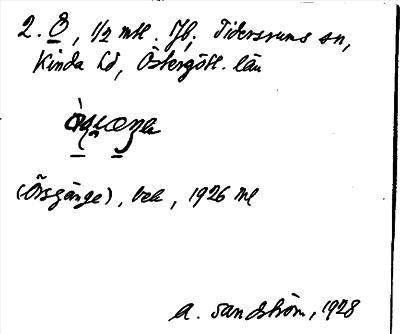 2. Ö, 1/2 mtl. Jb. Tidersrums sn,
Kinda hd, Östergötl. län
(Örsgänge), bek, 1926 ml
A. Sandström, 1928